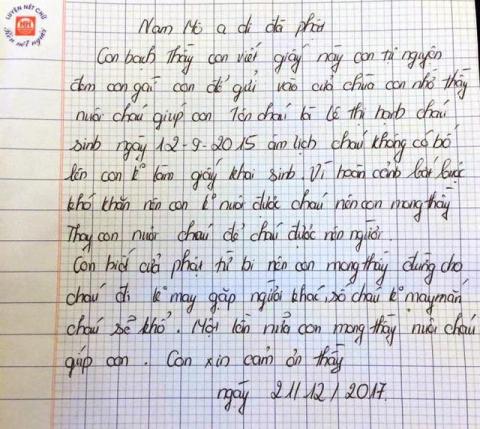 LUYỆN NÉT CHỮ
Rèn nết người
Nam Mô a di đà phật
Con bạch Thầy con viết giấy này con tự nguyện
đem con gái con đẻ gửi vào cửa chùa con nhờ thầy
nuôi cháu giúp con. Tên cháu là Lê thị hạnh cháu
sinh ngày 12-9-2015 âm lịch cháu không có bố
lên con k° làm giấy khai sinh. Vì hoàn cảnh bắt buộc
khó khăn nên con k° nuôi được cháu nên con mong thầy
Thay con nuôi cháu để cháu được nên người.
Con biết cửa phật từ bi nên con mong thầy đừng cho
cháu đi k° may gặp người khác, số cháu k° may mắn
cháu sẽ khổ. Một lần nữa con mong thầy nuôi cháu
giúp con. Con xin cảm ơn thầy
ngày 21/12/2017.